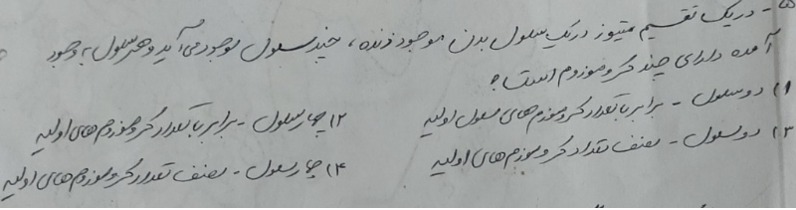 ۵ - در یک تقسیم میتوز در یک سلول بدن موجود زنده، چند سلول بوجود می آید و هر سلول به وجود
آمده دارای چند کروموزوم است؟
۱) دو سلول - برابر با تعداد کروموزوم های سلول اولیه
۲) چهار سلول - برابر با تعداد کروموزوم های اولیه
۳) دو سلول - نصف تعداد کروموزوم های اولیه
۴) چهار سلول - نصف تعداد کروموزوم های اولیه